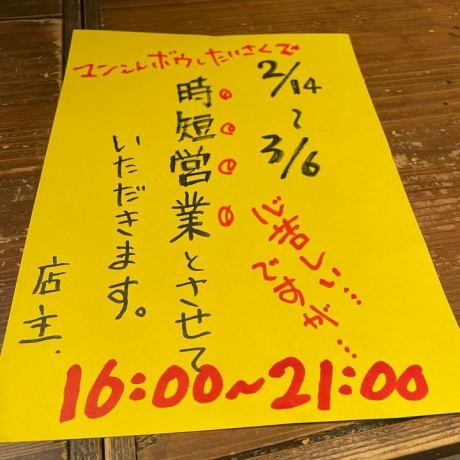 マンえんボウしたいさくで
2/14
〜
3/6
心苦しい…
ですが…
時短営業とさせて
いただきます。
店主.
16:00~21:00